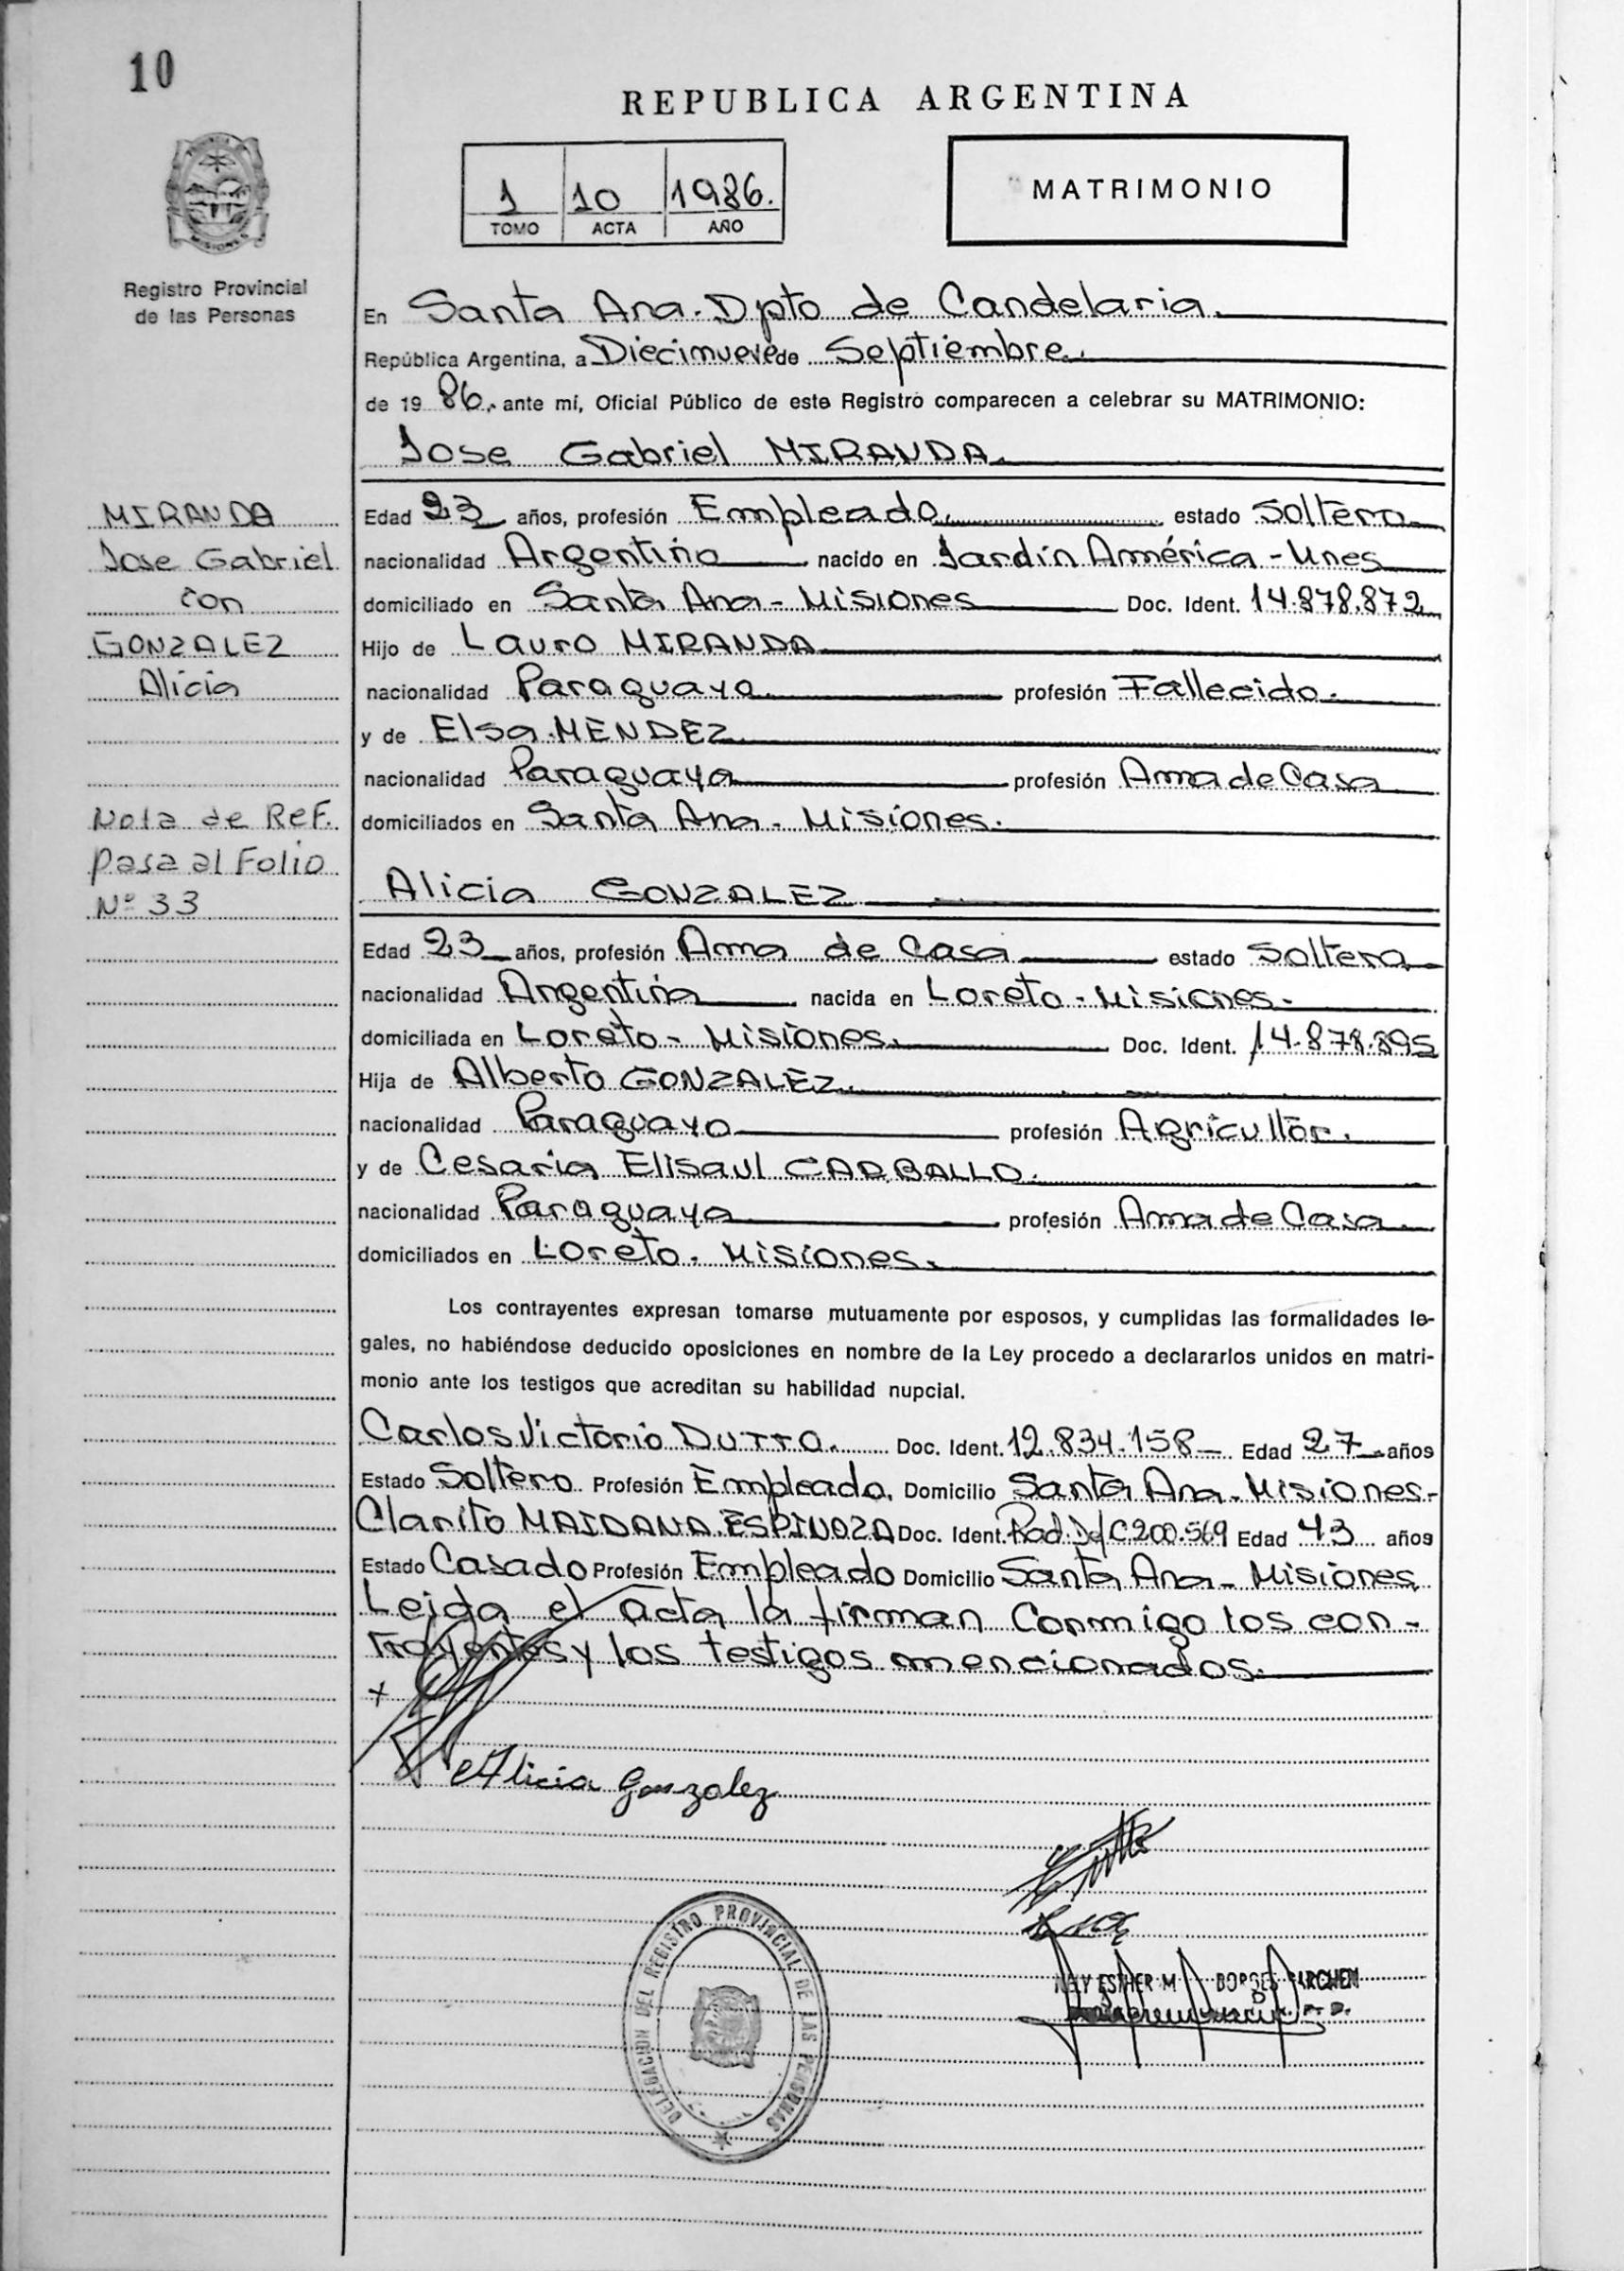 10
REPUBLICA ARGENTINA
1 10 1986.
TOMO ACTA AÑO
MATRIMONIO
MISIONES
Registro Provincial
de las Personas
En Santa Ana. Dpto de Candelaria.
República Argentina, a Diecinueve de Septiembre.
de 19 86. ante mí, Oficial Público de este Registro comparecen a celebrar su MATRIMONIO:
Jose Gabriel MIRANDA.
MIRANDA
Jose Gabriel
con
GONZALEZ
Alicia
Nota de Ref.
pasa al Folio
Nº 33
Edad 23 años, profesión Empleado. estado Soltero
nacionalidad Argentino nacido en Jardín América - Mnes
domiciliado en Santa Ana - Misiones Doc. Ident. 14.878.872
Hijo de Lauro MIRANDA
nacionalidad Paraguayo. profesión Fallecido.
y de Elsa MENDEZ
nacionalidad Paraguaya profesión Ama de Casa
domiciliados en Santa Ana - Misiones.
Alicia GONZALEZ
Edad 23 años, profesión Ama de Casa estado Soltera
nacionalidad Argentina nacida en Loreto - Misiones.
domiciliada en Loreto - Misiones. Doc. Ident. 14.878.895
Hija de Alberto GONZALEZ.
nacionalidad Paraguayo profesión Agricultor.
y de Cesaria Elisaul CARBALLO.
nacionalidad Paraguaya profesión Ama de Casa
domiciliados en Loreto. Misiones.
Los contrayentes expresan tomarse mutuamente por esposos, y cumplidas las formalidades le-
gales, no habiéndose deducido oposiciones en nombre de la Ley procedo a declararlos unidos en matri-
monio ante los testigos que acreditan su habilidad nupcial.
Carlos Victorio DUTTO. Doc. Ident. 12.834.158 Edad 27 años
Estado Soltero Profesión Empleado. Domicilio Santa Ana - Misiones-
Clarito MAIDANA ESPINOZA Doc. Ident. Rad. Def C200.569 Edad 43 años
Estado Casado Profesión Empleado Domicilio Santa Ana - Misiones
Leida el acta la firman Conmigo los con-
trayentes y los testigos mencionados.
x
Alicia Gonzalez
DELEGACION DEL REGISTRO PROVINCIAL DE LAS PERSONAS
ESTHER M BORGES